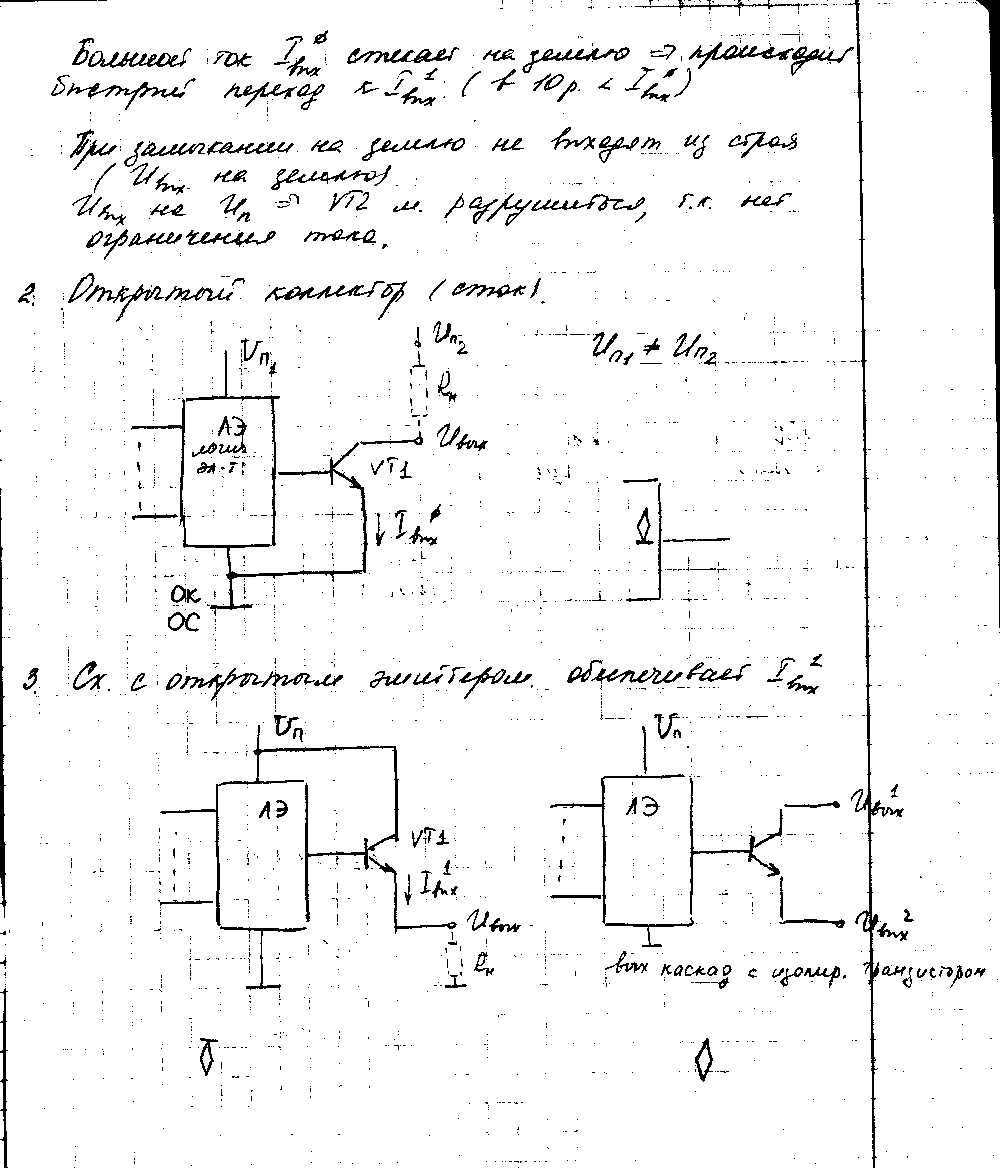 Большой ток I⁰вых стекает на землю ⇒ происходит
быстрый переход к I¹вых. (в 10 р. < I⁰вых)
При замыкании на землю не выходят из строя
(Uвых на землю)
Uвых на Uп ⇒ VT2 м. разрушиться, т.к. нет
ограничения тока.
2. Открытый коллектор (сток).
Uп1
Uп2
Uп1 ≠ Uп2
Rн
ЛЭ
логич.
эл-т
Uвых
VT1
I⁰вых
ОК
ОС
3 Сх. с открытым эмиттером. обеспечивает I¹вых
Uп
Uп
ЛЭ
VT1
I¹вых
Uвых
Rн
ЛЭ
Uвых¹
Uвых²
вых каскад с изолир. транзистором